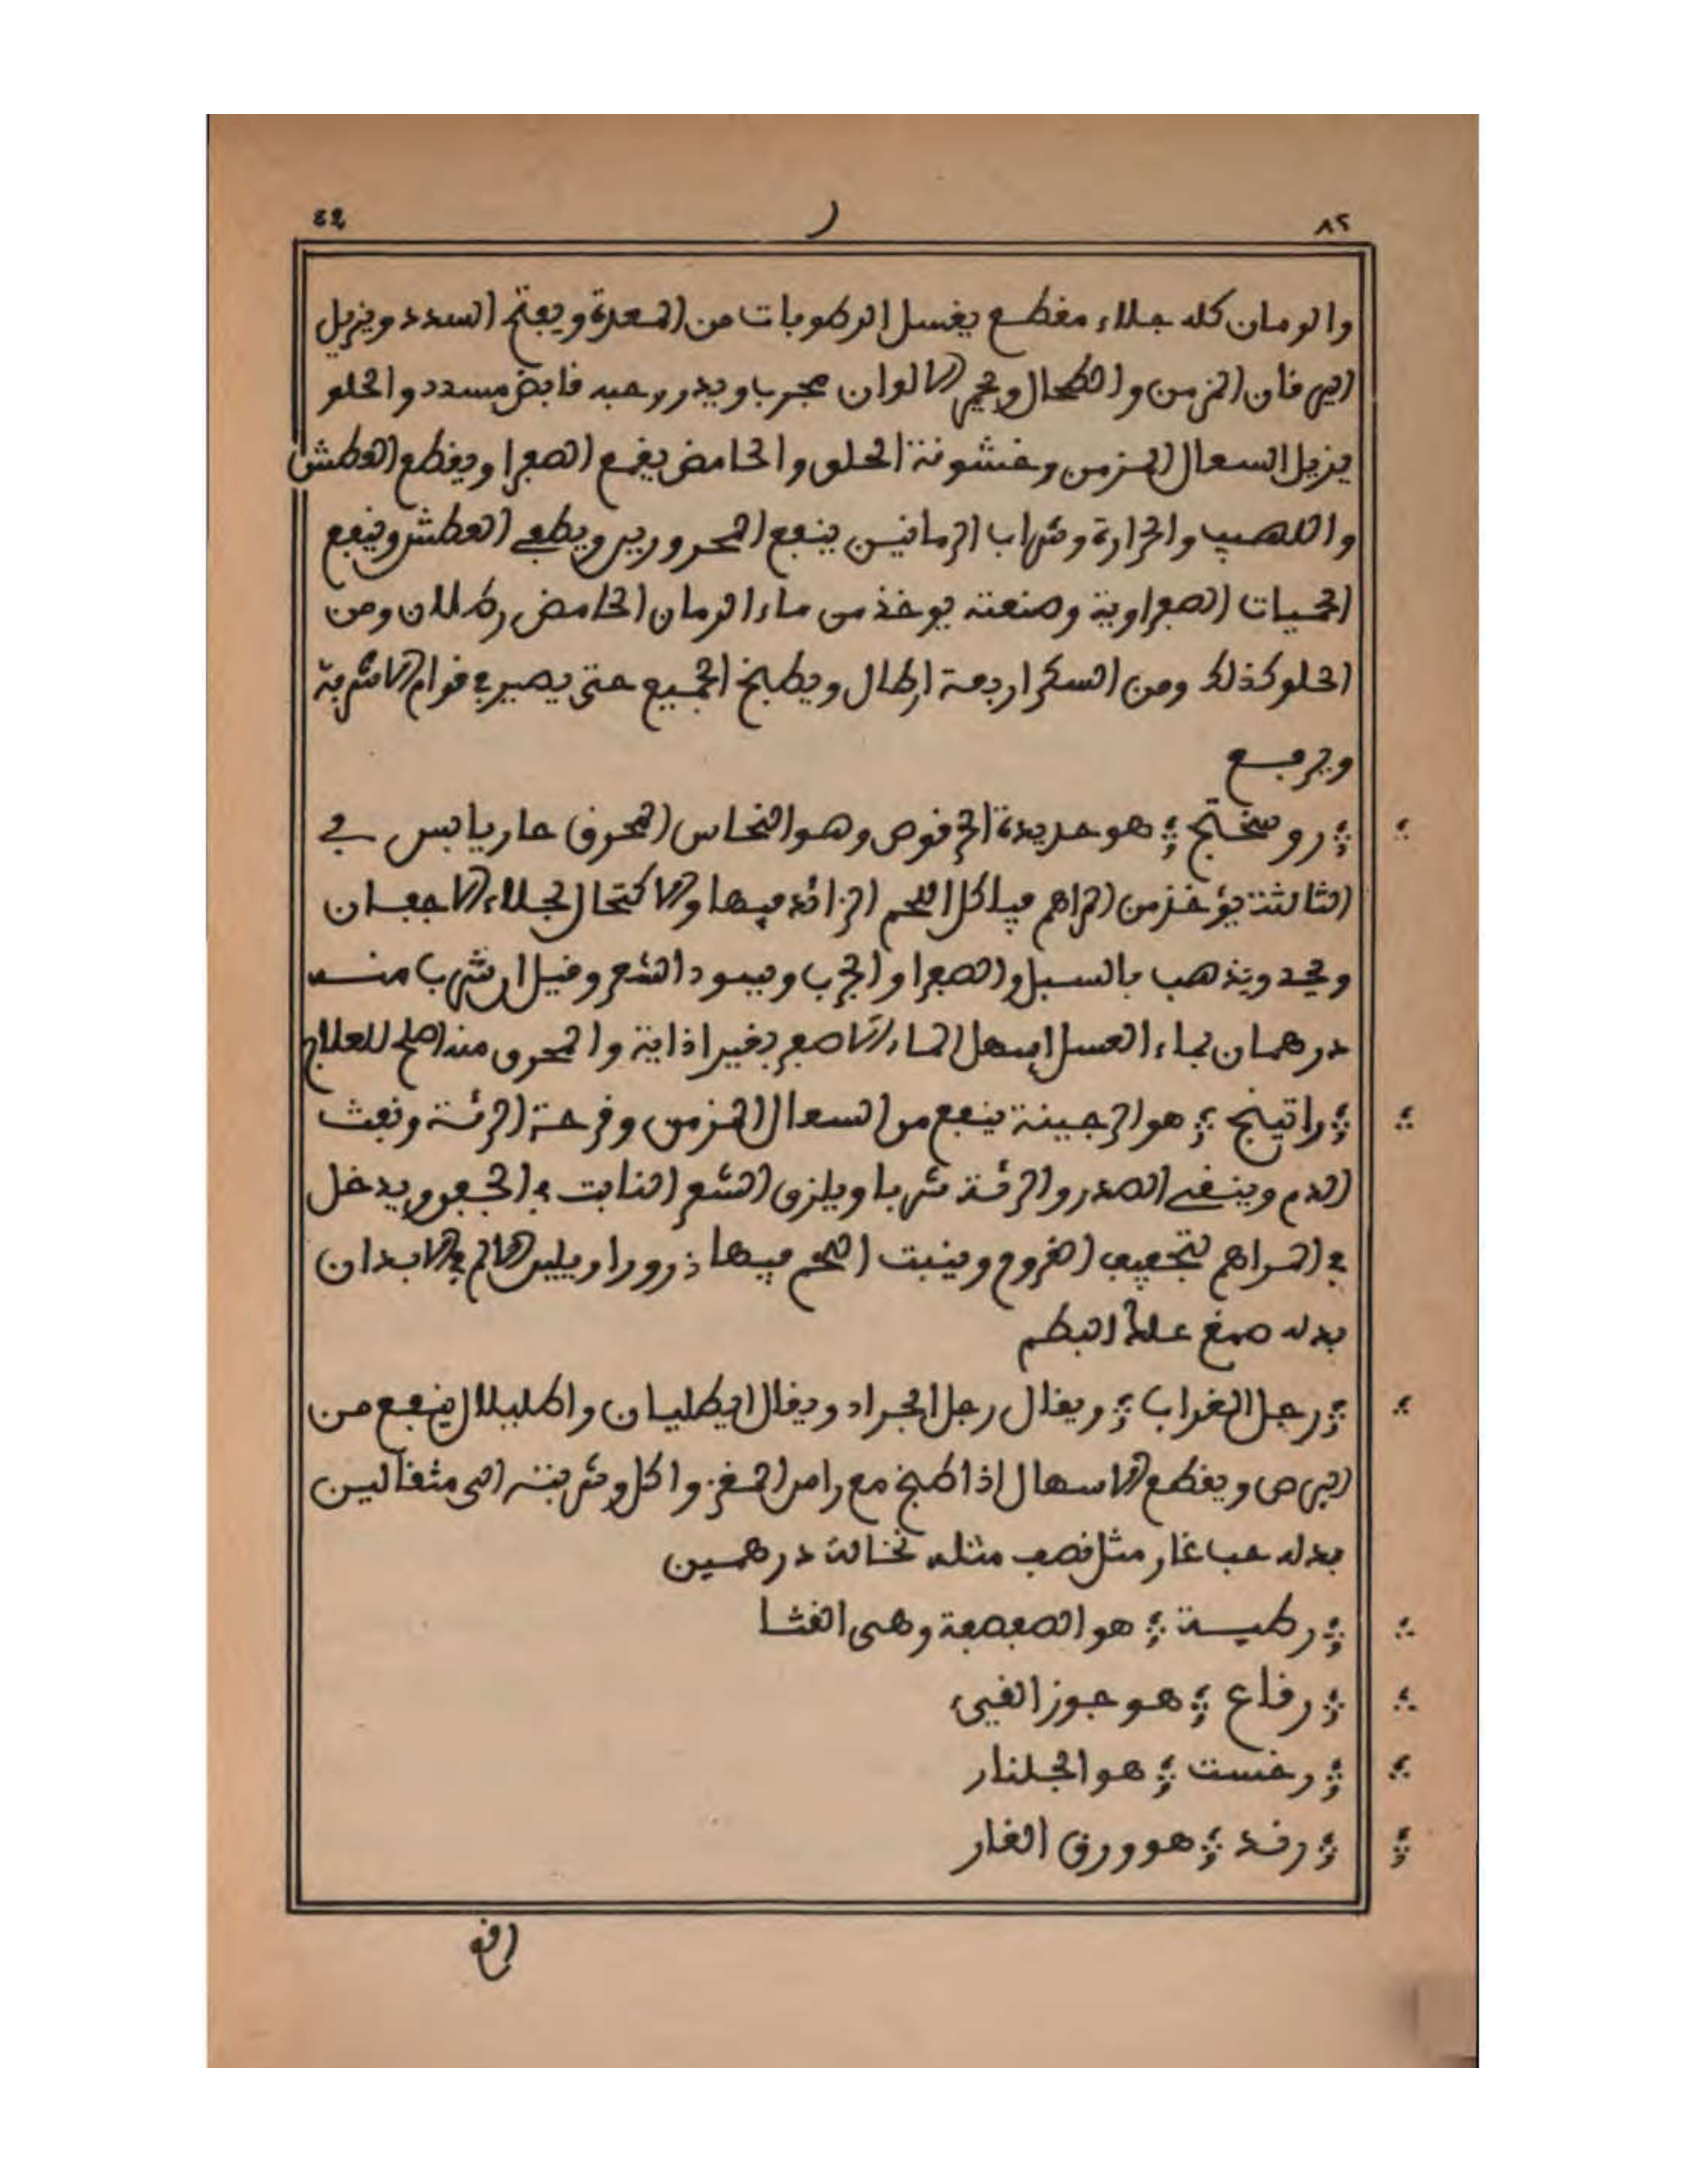 ٨٢ ر ٤٩
والرمان كله جلاء مقطع يغسل الرطوبات من المعدة ويفتح السدد ويزيل
اليرقان المزمن والطحال ويحمر الالوان مجرب ويدر وحبه قابض مسدد والحلو
يزيل السعال المزمن وخشونة الحلق والحامض يقمع الصفرا ويقطع العطش
واللهيب والحرارة وشراب الرمانين ينفع المحرورين ويطفي العطش وينفع
الحميات الصفراوية وصنعته يوخذ من ماء الرمان الحامض رطلان ومن
الحلو كذلك ومن السكر اربعة ارطال ويطبخ الجميع حتى يصير في قوام الاشربة
ويرفع
روسختج هو حديدة الحرقوص وهو النحاس المحرق حار يابس في
الثالثة يؤخذ من المراهم فياكل اللحم الزائد فيها والاكتحال لجلاء الاجفان
ويحد ويذهب بالسبل والصفرا والجرب ويسود الشعر وقيل ان شرب منه
درهمان بماء العسل اسهل الماء الاصفر بغير اذاية والمحرق منه اصلح للعلاج
راتينج هو الرجينة ينفع من السعال المزمن وقرحة الرئة ونفث
الدم وينقي الصدر والرئة شربا ويلزق الشعر النابت في الجفن ويدخل
في المراهم لتجفيف القروح وينبت اللحم فيها ذرورا ويلين الالم في الابدان
بدله صمغ علك البطم
رجل الغراب ويقال رجل الجراد ويقال ايطليان واطليلال ينفع من
البرص ويقطع الاسهال اذا طبخ مع راس المغز واكل وشربته الى مثقالين
بدله حب غار مثل نصف مثله نخالة درهمين
رطبة هو الصفصفة وهي القثا
رقاع هو جوز القيء
رخست هو الجلنار
رند هو ورق الغار